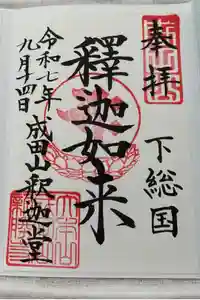 奉拝
下総国
釋迦如来
令和七年
九月十四日
成田山釈迦堂